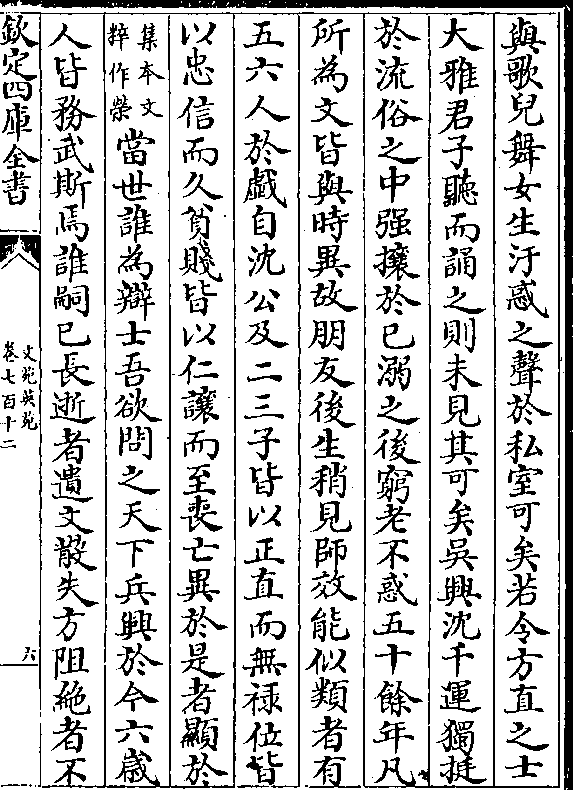 與歌兒舞女生汙惑之聲於私室可矣若令方直之士
大雅君子聽而誦之則未見其可矣吳興沈千運獨挺
於流俗之中强攘於已溺之後窮老不惑五十餘年凡
所為文皆與時異故朋友後生稍見師效能似類者有
五六人於戲自沈公及二三子皆以正直而無禄位皆
以忠信而久貧賤皆以仁讓而至喪亡異於是者顯於
集本文
粹作榮
當世誰為辯士吾欲問之天下兵興於今六歲
人皆務武斯焉誰嗣已長逝者遺文散失方阻絶者不
欽定四庫全書
文苑英華
卷七百十二
六